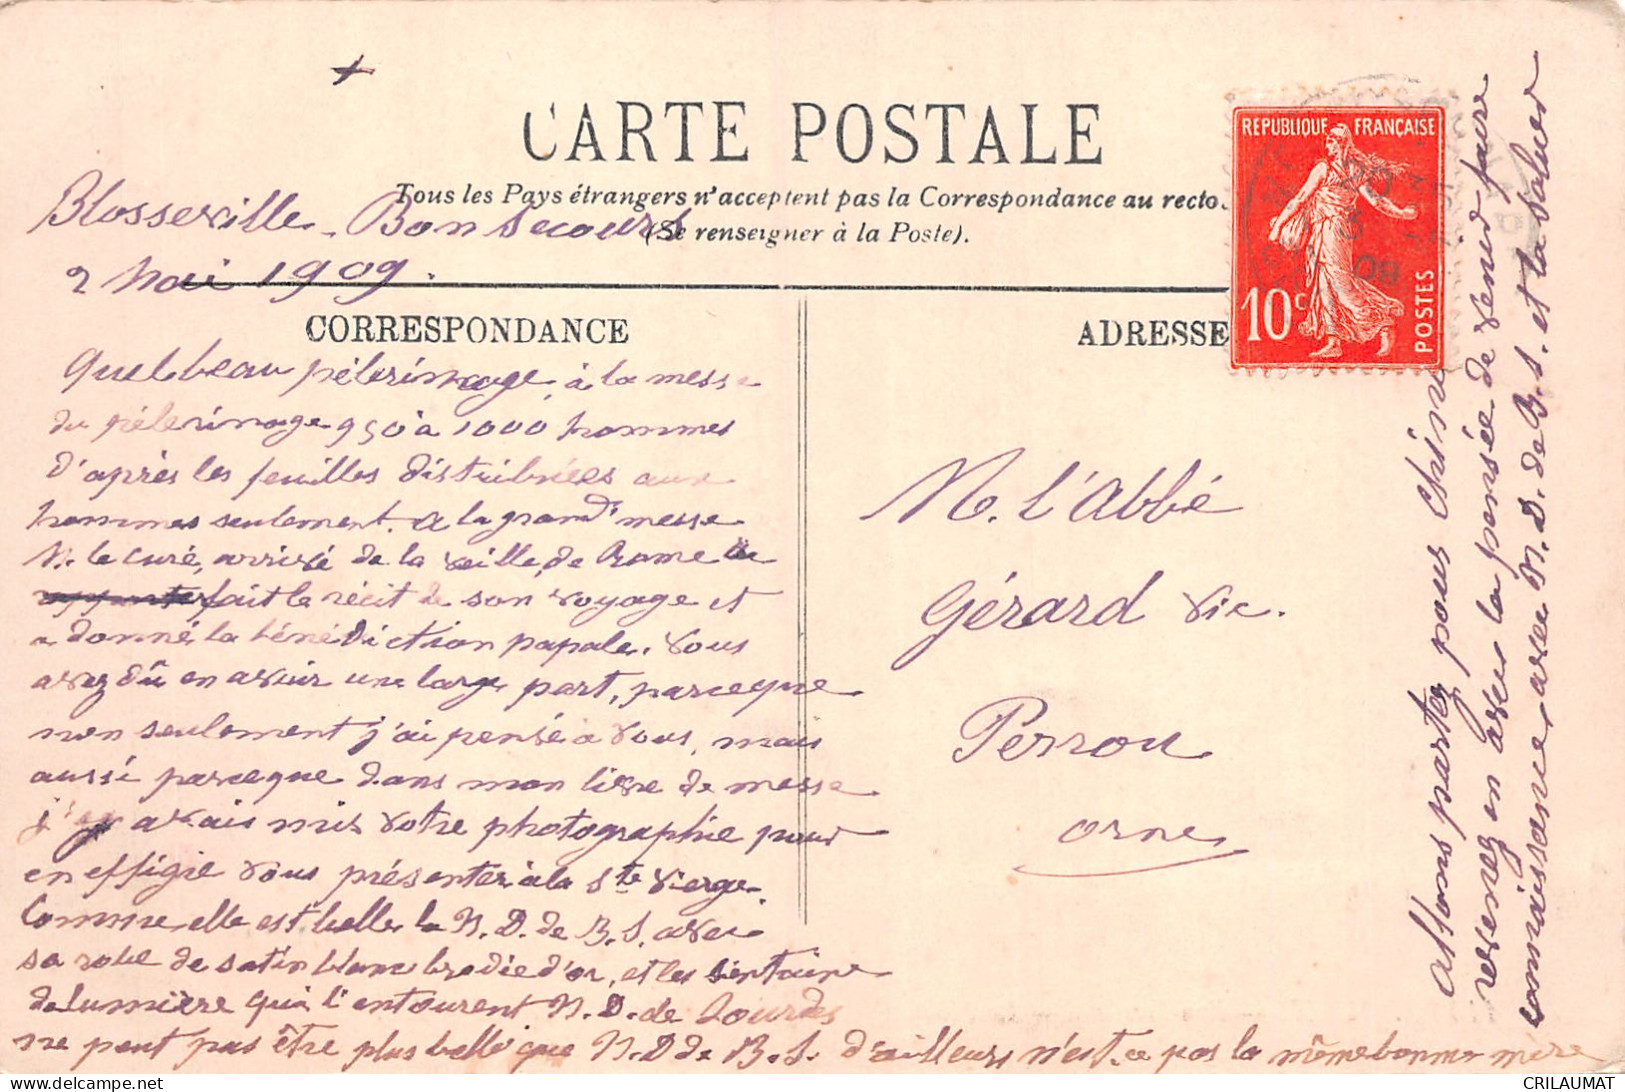 CARTE POSTALE
Tous les Pays étrangers n'acceptent pas la Correspondance au recto.
(Se renseigner à la Poste).
Blosseville-Bonsecours
2 Mai 1909.
CORRESPONDANCE
Quel beau pélerinage, à la messe
du pélerinage 950 à 1000 hommes
d'après les feuilles distribuées aux
hommes seulement. A la grand'messe
M. le curé, arrivé de la veille de Rome
fait le récit de son voyage et
a donné la bénédiction papale. Vous
avez dû en avoir une large part, parceque
non seulement j'ai pensé à vous, mais
aussi parceque dans mon livre de messe
j'y avais mis votre photographie pour
en effigie vous présenter à la Ste Vierge.
Comme elle est belle la N. D. de B. S. avec
sa robe de satin blanc brodée d'or, et les
de lumière qui l'entourent N. D. de Lourdes
ne peut pas être plus belle que N. D de B. S. d'ailleurs n'est-ce pas la même bonne mère
ADRESSE
REPUBLIQUE FRANÇAISE
10c
POSTES
M. l'Abbé
Gérard Vic.
Perrou
Orne
Allons partez pour
revenez en avec la pensée de venir faire
connaissance avec N. D. de B. S. et la saluer
CRILAUMAT